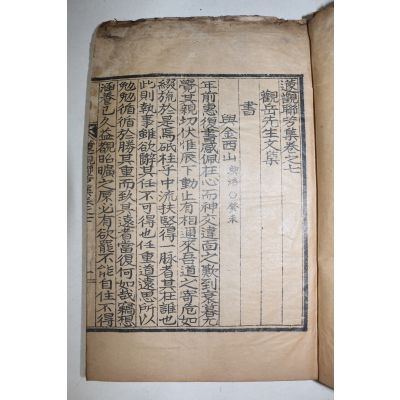 蘧觀聯芳集卷之七
觀岳先生文集
書
與金西山 興洛○癸未
年前惠復書感佩在心而神交違面之歎到衰暮尤
覺甚親切伏惟辰下動止有相通來吾道之寄危如
綴旒於是焉砥柱乎中流扶竪得一脉者其在誰也
此則執事雖欲辭其任不可得也任重道遠思所以
勉勉循循於勝其重而致其遠者當復何如哉竊想
涵養已久益觀昭曠之原必有欲罷不能自住不得